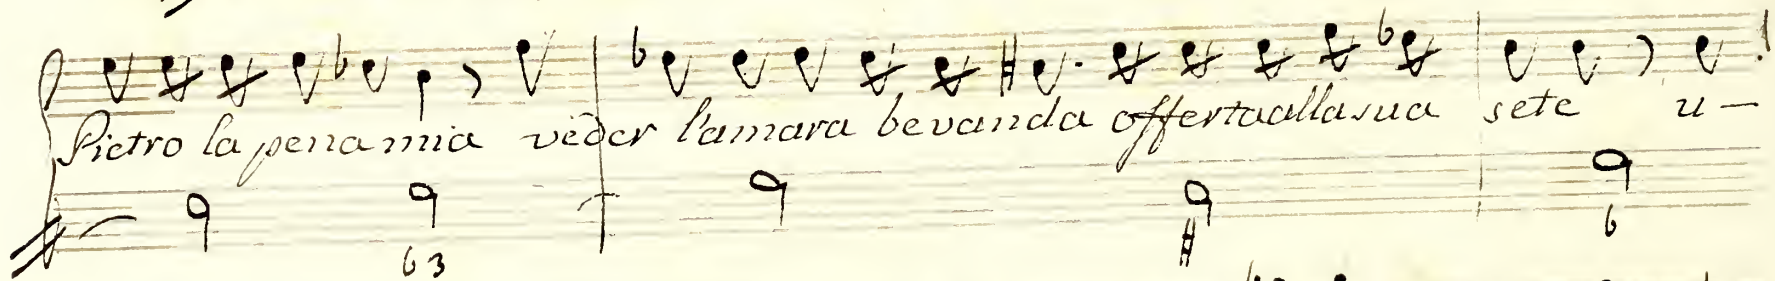 Pietro la pena mia veder l'amara bevanda offerta alla sua sete u-
b3 # 6